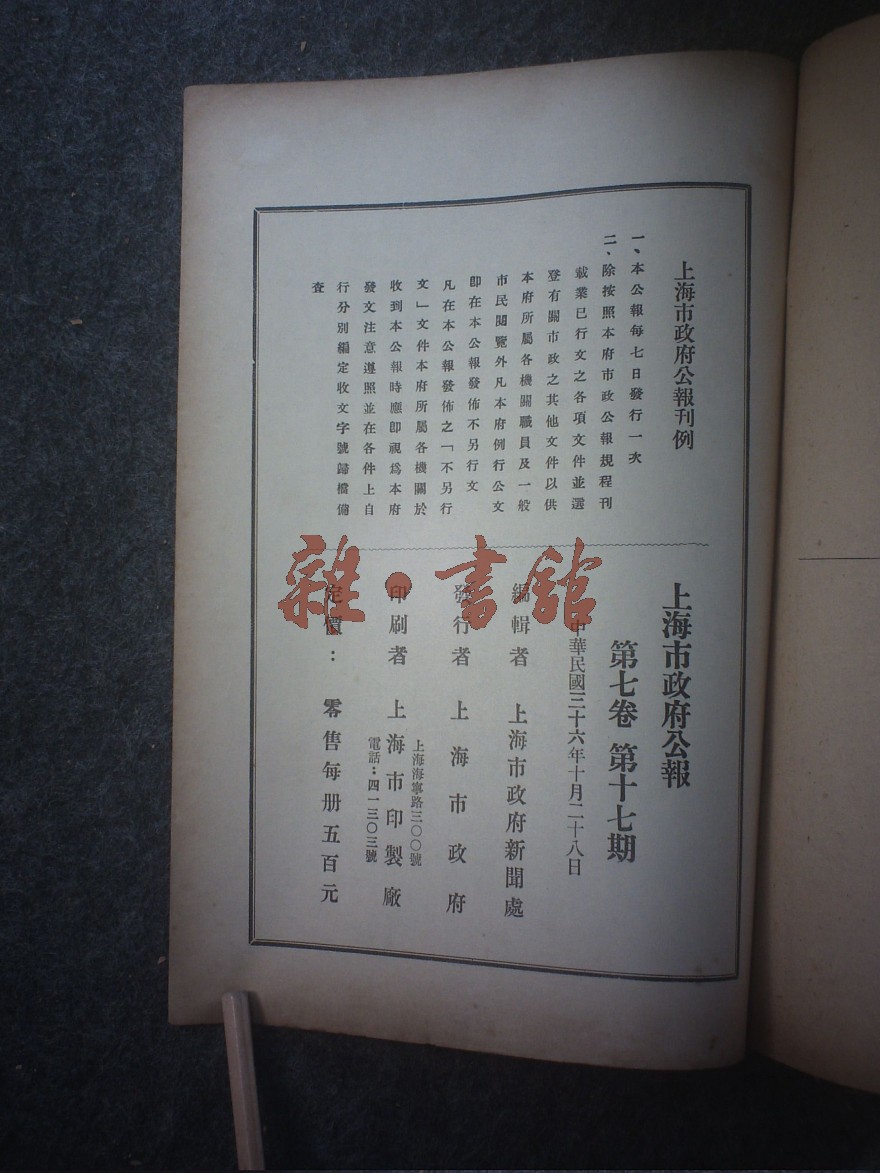 上海市政府公報刊例
一、本公報每七日發行一次
二、除按照本府市政公報規程刊
載業已行文之各項文件並選
登有關市政之其他文件以供
本府所屬各機關職員及一般
市民閱覽外凡本府例行公文
卽在本公報發佈不另行文
凡在本公報發佈之「不另行
文」文件本府所屬各機關於
收到本公報時應卽視爲本府
發文注意遵照並在各件上自
行分別編定收文字號歸檔備
查
上海市政府公報
第七卷 第十七期
中華民國三十六年十月二十八日
編輯者 上海市政府新聞處
發行者 上海市政府
印刷者 上海市印製廠
上海海寧路三〇〇號
電話：四一三〇三號
定價： 零售每册五百元
雜·書館